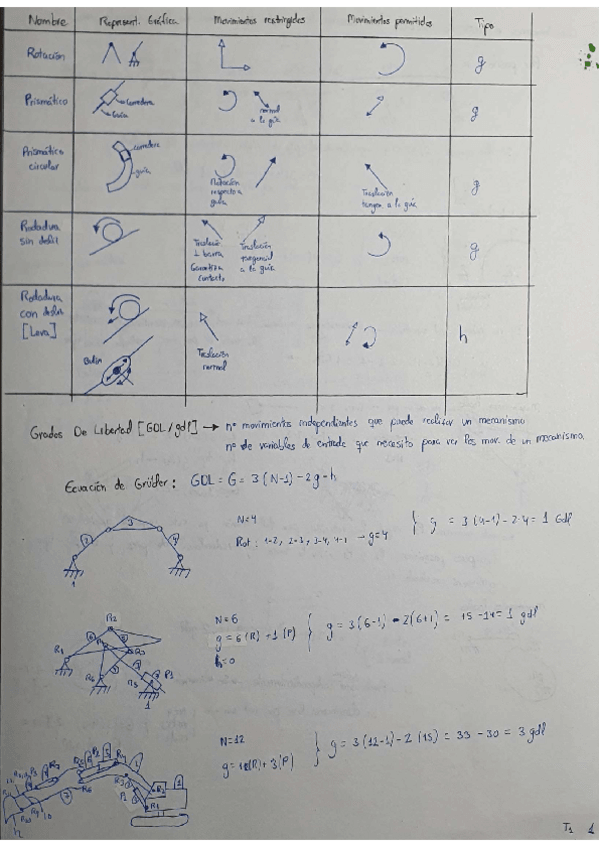 Nombre Represent. Gráfica Movimientos restringidos Movimientos permitidos Tipo
Rotación g
Prismático corredera Guía normal a la guía g
Prismático circular corredera guía Rotación respecto a guía Traslación tangen a la guía g
Rodadura sin desliz Traslación ⊥ barra Garantiza contacto Traslación tangencial a la guía g
Rodadura con desliz [Leva] Bulón Traslación normal h
Grados De Libertad [GDL/gdl] → nº movimientos independientes que puede realizar un mecanismo
nº de variables de entrada que necesito para ver los mov. de un mecanismo.
Ecuación de Grübler: GDL = G = 3(N-1) - 2g - h
N=4
Rot: 1-2, 2-3, 3-4, 4-1 → g=4
} g = 3(4-1) - 2·4 = 1 Gdl
2 3 4 1
N=6
g = 6(R) + 1(P)
h=0
} g = 3(6-1) - 2(6+1) = 15 - 14 = 1 gdl
R2 R1 R3 R6 R5 P1 1
N=12
} g = 3(12-1) - 2(15) = 33 - 30 = 3 gdl
T1 1